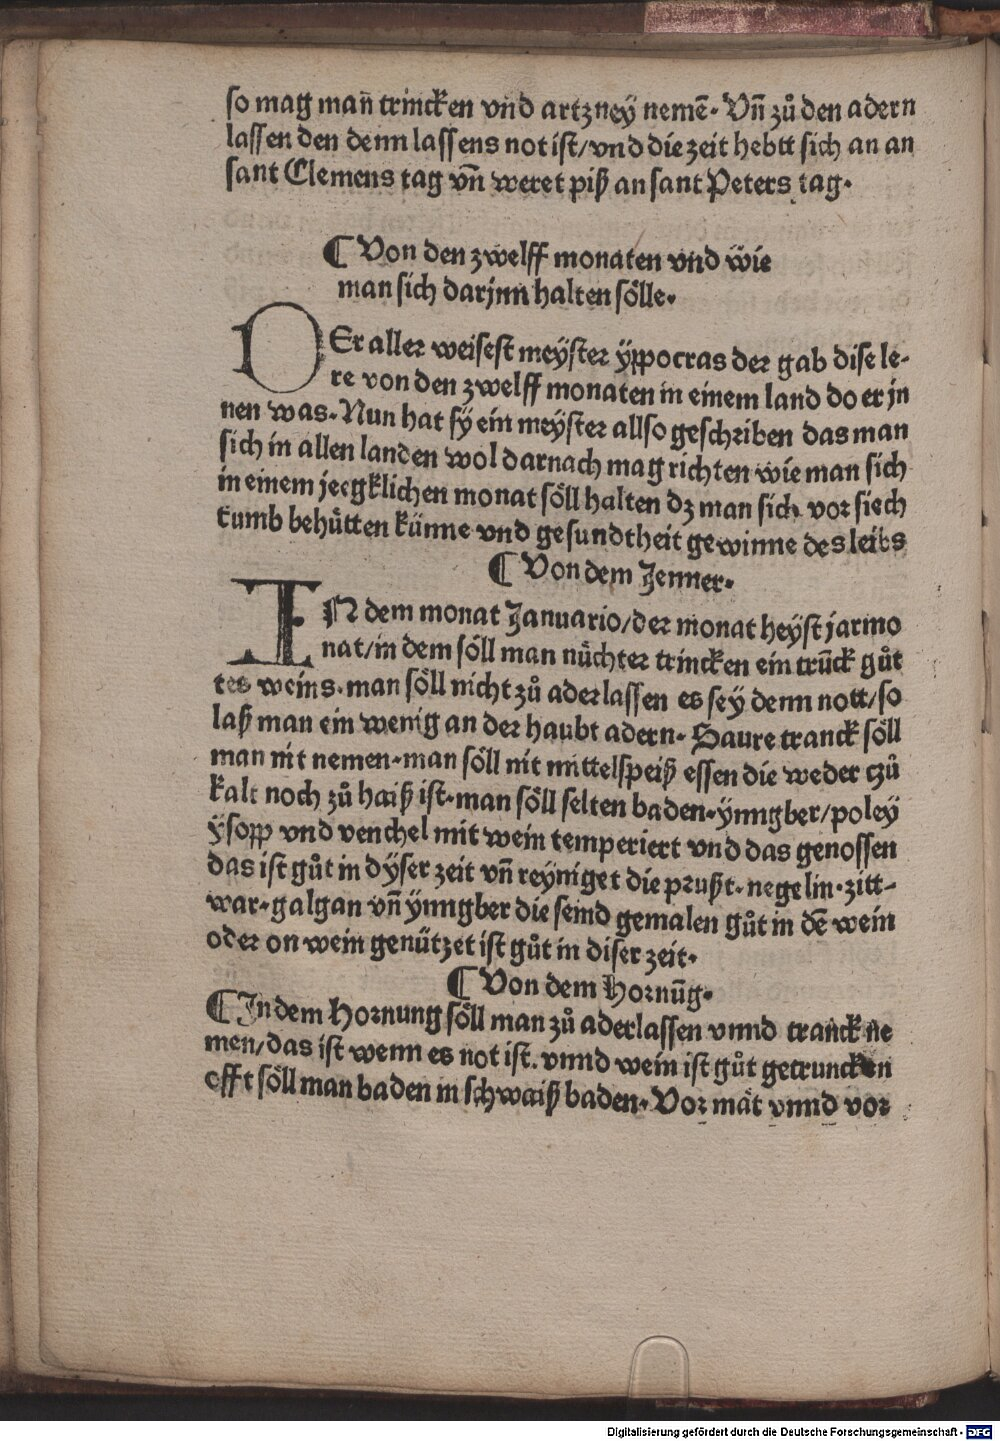 so mag man trincken vnd artzney nemē. Vn̄ zů den adern
lassen den denn lassens not ist/vnd die zeit hebtt sich an an
sant Clemens tag vn̄ weret piß an sant Peters tag.
¶ Von den zwelff monaten vnd wie
man sich darjnn halten sölle.
DEr aller weisest meÿster ÿppocras der gab dise le-
re von den zwelff monaten in einem land do er jn
nen was. Nun hat sÿ ein meÿster allso geschriben das man
sich in allen landen wol darnach mag richten wie man sich
in einem jeegklichen monat söll halten dz man sich vor siech
tumb behůtten künne vnd gesundtheit gewinne des leibs
¶ Von dem Jenner.
IN dem monat Januario/der monat heÿst jarmo
nat/in dem söll man nůchter trincken ein trūck gůt
tes weins. man söll nicht zů aderlassen es seÿ denn nott/so
laß man ein wenig an der haubt adern. Saure tranck söll
man nit nemen. man söll nit mittelspeiß essen die weder czů
kalt noch zů haiß ist. man söll selten baden. ÿnngber/poleÿ
ÿsopp vnd venchel mit wein temperiert vnd das genossen
das ist gůt in dÿser zeit vn̄ reÿniget die prußt. negelin. zitt-
war. galgan vn̄ ÿnngber die seind gemalen gůt in dē wein
oder on wein genützet ist gůt in diser zeit.
¶ Von dem Hornūg.
¶ In dem Hornung söll man zů aderlassen vnnd tranck ne
men/das ist wenn es not ist. vnnd wein ist gůt getruncken
offt söll man baden in schwaiß baden. Vor mät vnnd vor
Digitalisierung gefördert durch die Deutsche Forschungsgemeinschaft - DFG